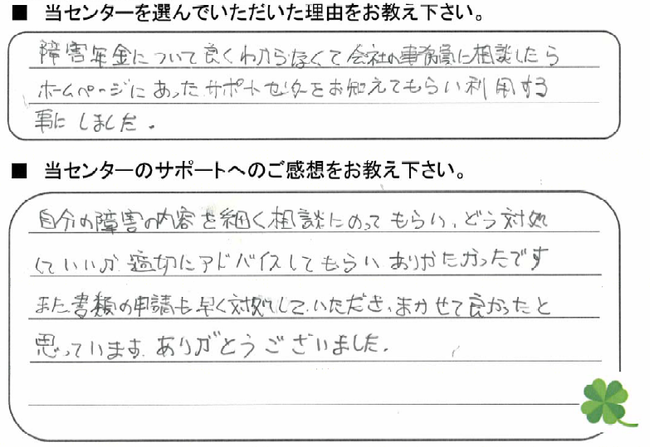 ■ 当センターを選んでいただいた理由をお教え下さい。
障害年金について良くわからなくて会社の事務員に相談したら
ホームページにあったサポートセンターをお知えてもらい利用する
事にしました。
■ 当センターのサポートへのご感想をお教え下さい。
自分の障害の内容を細く相談にのってもらい、どう対処
していいか適切にアドバイスしてもらいありがたかったです
また書類の申請も早く対処していただき、まかせて良かったと
思っています。ありがとうございました。